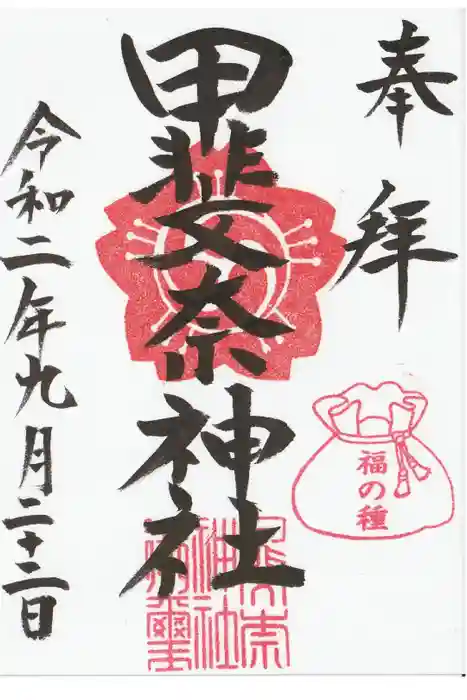 奉拝
甲斐奈神社
令和二年九月二十二日
福の種
甲斐奈
神社